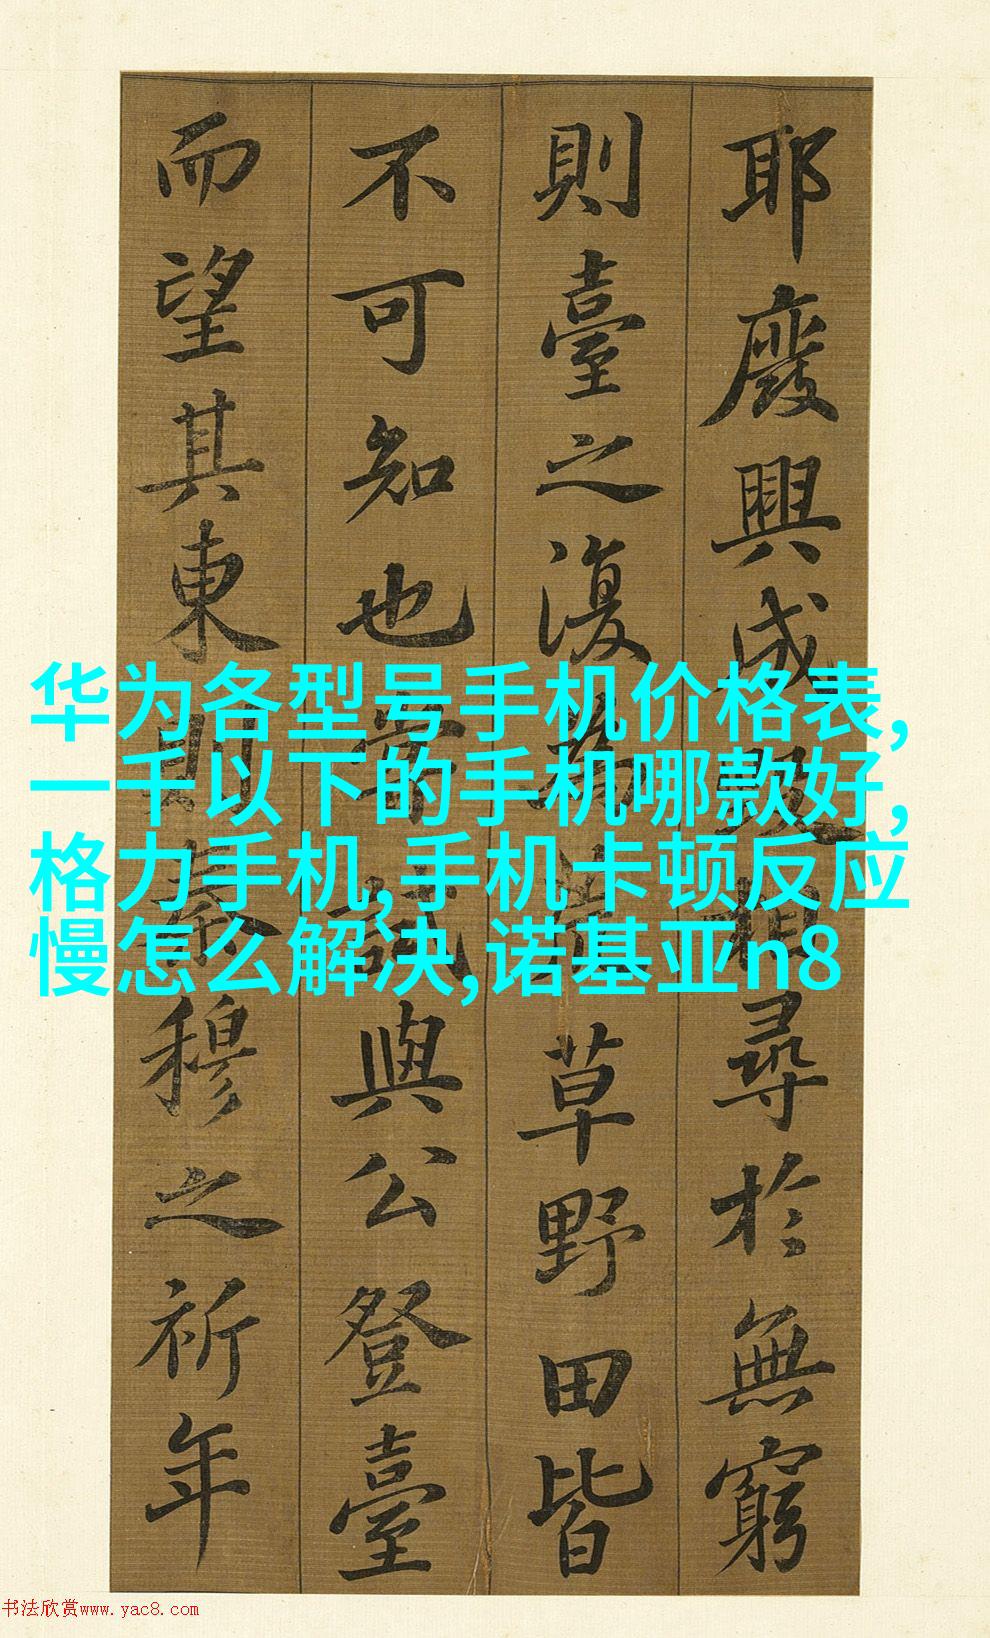 耶廢興成毀相尋於無窮
則臺之復為荒草野田皆
不可知也嘗試與公登臺
而望其東則秦穆之祈年
华为各型号手机价格表,
一千以下的手机哪款好,
格力手机,手机卡顿反应
慢怎么解决,诺基亚n8
书法欣赏www.yac8.com